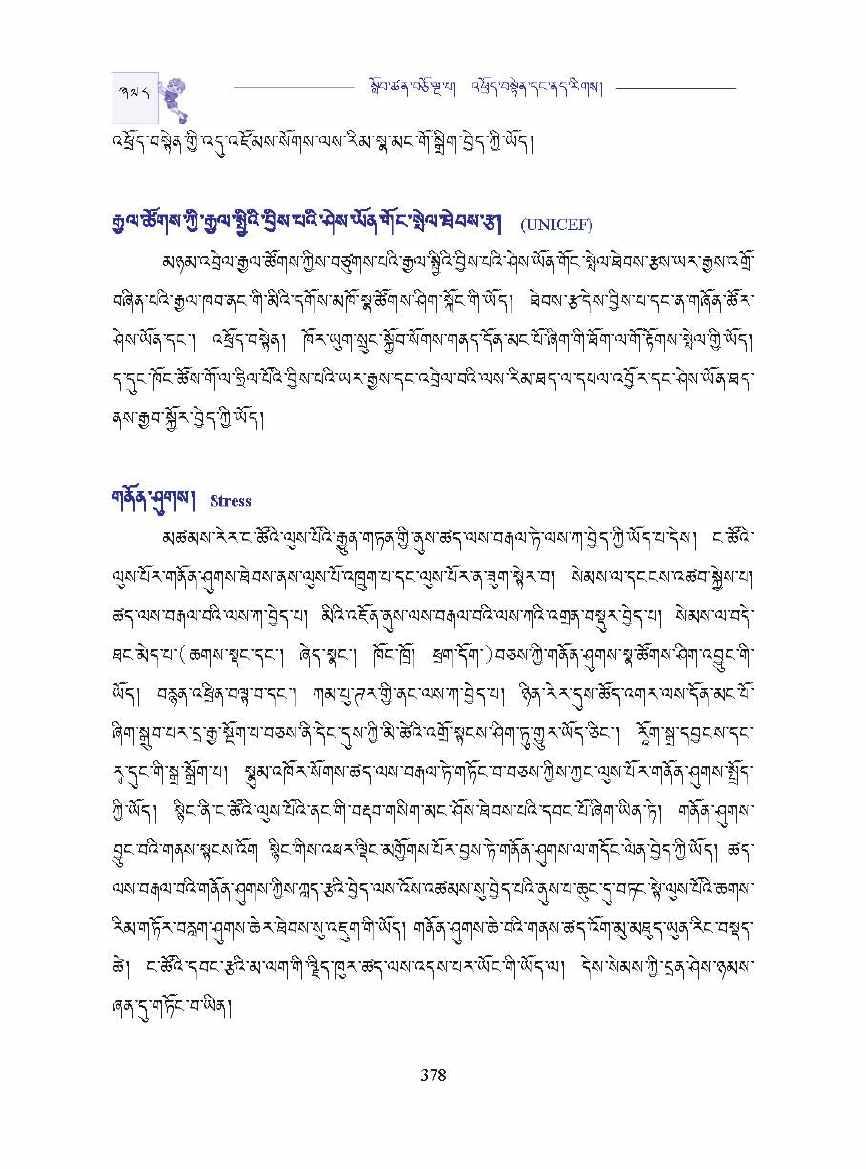 ༣༧༨ སློབ་ཚན་བཅོ་ལྔ་པ། འཕྲོད་བསྟེན་དང་ནད་རིགས།
འཕྲོད་བསྟེན་གྱི་འདུ་འཛོམས་སོགས་ལས་རིམ་སྣ་མང་གོ་སྒྲིག་བྱེད་ཀྱི་ཡོད།
རྒྱལ་ཚོགས་ཀྱི་རྒྱལ་སྤྱིའི་བྱིས་པའི་ཤེས་ཡོན་གོང་སྤེལ་ཐེབས་རྩ། (UNICEF)
མཉམ་འབྲེལ་རྒྱལ་ཚོགས་ཀྱིས་བཙུགས་པའི་རྒྱལ་སྤྱིའི་བྱིས་པའི་ཤེས་ཡོན་གོང་སྤེལ་ཐེབས་རྩས་ཡར་རྒྱས་འགྲོ་
བཞིན་པའི་རྒྱལ་ཁབ་ནང་གི་མིའི་དགོས་མཁོ་སྣ་ཚོགས་ཤིག་སྐོང་གི་ཡོད། ཐེབས་རྩ་དེས་བྱིས་པ་དང་ན་གཞོན་ཚོར་
ཤེས་ཡོན་དང་། འཕྲོད་བསྟེན། ཁོར་ཡུག་སྲུང་སྐྱོབ་སོགས་གནད་དོན་མང་པོ་ཞིག་གི་ཐོག་ལ་གོ་རྟོགས་སྤེལ་གྱི་ཡོད།
ད་དུང་ཁོང་ཚོས་གོ་ལ་ཧྲིལ་པོའི་བྱིས་པའི་ཡར་རྒྱས་དང་འབྲེལ་བའི་ལས་རིམ་ཐད་ལ་དཔལ་འབྱོར་དང་ཤེས་ཡོན་ཐད་
ནས་རྒྱབ་སྐྱོར་བྱེད་ཀྱི་ཡོད།
གནོན་ཤུགས། Stress
མཚམས་རེར་ང་ཚོའི་ལུས་པོའི་རྒྱུན་གཏན་གྱི་ནུས་ཚད་ལས་བརྒལ་ཏེ་ལས་ཀ་བྱེད་ཀྱི་ཡོད་པ་དེས། ང་ཚོའི་
ལུས་པོར་གནོན་ཤུགས་ཐེབས་ནས་ལུས་པོ་འཁྲུག་པ་དང་ལུས་པོར་ན་ཟུག་སྟེར་བ། སེམས་ལ་དངངས་འཚབ་སྐྱེས་པ།
ཚད་ལས་བརྒལ་བའི་ལས་ཀ་བྱེད་པ། མིའི་འཇོན་ནུས་ལས་བརྒལ་བའི་ལས་ཀའི་འགྲན་བསྡུར་བྱེད་པ། སེམས་ལ་བདེ་
ཐང་མེད་པ་(ཆགས་སྡང་དང་། ཞེད་སྣང་། ཁོང་ཁྲོ། ཕྲག་དོག་)བཅས་ཀྱི་གནོན་ཤུགས་སྣ་ཚོགས་ཤིག་འབྱུང་གི་
ཡོད། བརྙན་འཕྲིན་བལྟ་བ་དང་། ཀམ་པུ་ཊར་གྱི་ནང་ལས་ཀ་བྱེད་པ། ཉིན་རེར་དུས་ཚོད་འགར་ལས་དོན་མང་པོ་
ཞིག་སྒྲུབ་པར་དྲ་རྒྱ་སྤྱོག་པ་བཅས་ནི་དེང་དུས་ཀྱི་མི་ཚེའི་འགྲོ་སྟངས་ཤིག་ཏུ་གྱུར་ཡོད་ཅིང་། རོག་སྒྲ་དབྱངས་དང་
དུང་གི་སྒྲ་སྒྲོག་པ། སྣུམ་འཁོར་སོགས་ཚད་ལས་བརྒལ་ཏེ་གཏོང་བ་བཅས་ཀྱིས་ཀྱང་ལུས་པོར་གནོན་ཤུགས་སྤྲོད་
ཀྱི་ཡོད། སྙིང་ནི་ང་ཚོའི་ལུས་པོའི་ནང་གི་བརྡབ་གསིག་མང་ཤོས་ཐེབས་པའི་དབང་པོ་ཞིག་ཡིན་ཏེ། གནོན་ཤུགས་
བྱུང་བའི་གནས་སྟངས་འོག སྙིང་གིས་འཕར་ལྡིང་མགྱོགས་པོར་བྱས་ཏེ་གནོན་ཤུགས་ལ་གདོང་ལེན་བྱེད་ཀྱི་ཡོད། ཚད་
ལས་བརྒལ་བའི་གནོན་ཤུགས་ཀྱིས་ཀླད་རྩའི་བྱེད་ལས་འོས་འཚམས་སུ་བྱེད་པའི་ནུས་པ་ཆུང་དུ་བཏང་སྟེ་ལུས་པོའི་ཆགས་
རིམ་གཏོར་བརླག་ཤུགས་ཆེར་ཐེབས་སུ་འཇུག་གི་ཡོད། གནོན་ཤུགས་ཆེ་བའི་གནས་ཚད་འོག་མུ་མཐུད་ཡུན་རིང་བསྡད་
ཚེ། ང་ཚོའི་དབང་རྩའི་མ་ལག་གི་ལྗིད་ཁུར་ཚད་ལས་འདས་པར་ཡོང་གི་ཡོད་ལ། དེས་སེམས་ཀྱི་དྲན་ཤེས་ཉམས་
ཞན་དུ་གཏོང་བ་ཡིན།
378